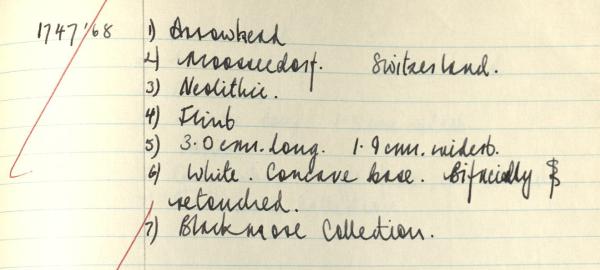 1747'68 1) Arrowhead
2) Moosseedorf. Switzerland.
3) Neolithic.
4) Flint
5) 3.0 cms. long. 1.9 cms. widest.
6) White. Concave base. Bifacially &
retouched.
7) Blackmore Collection.